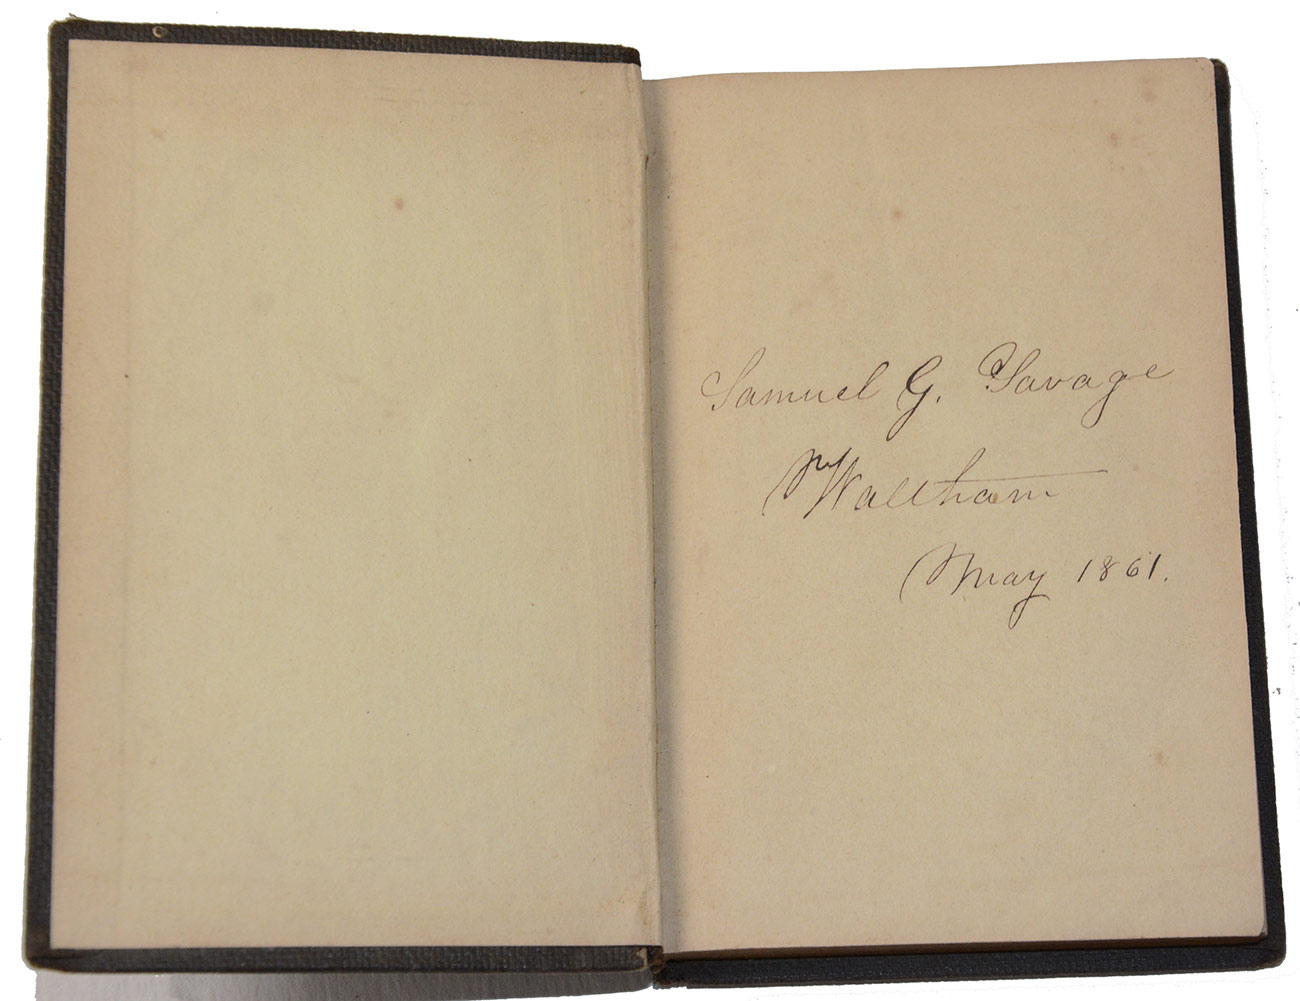 Samuel G. Savage
Waltham
May 1861.